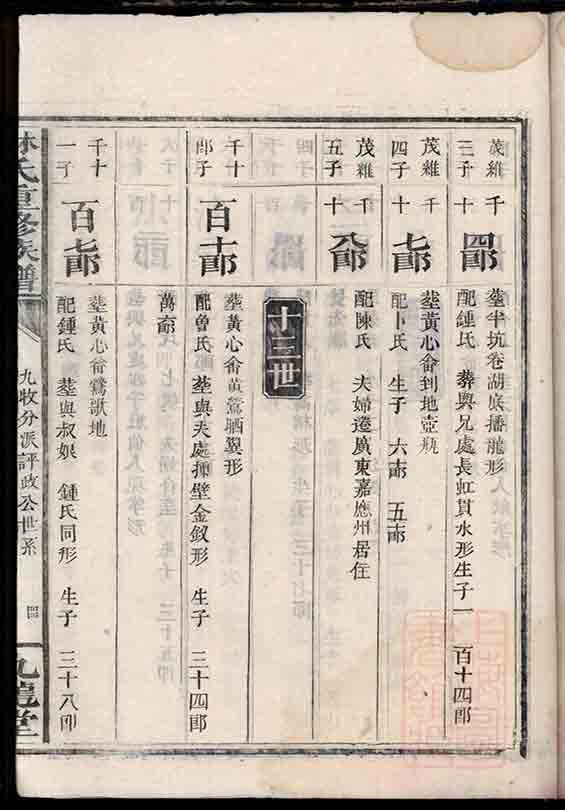 茂雞三子
千十四郎
塟半坑卷湖底播龍形
配鍾氏 葬與兄處長虹貫水形生子一 百十四郎
茂雞四子
千十七郎
塟黃心畬到地壺瓶
配卜氏 生子 六十郎 五十郎
茂雞五子
千十八郎
配陳氏 夫婦遷廣東嘉應州居住
十三世
千十郎子
百十郎
塟黃心畬黃鶯晒翼形
配曾氏 塟與夫處掛壁金釵形 生子 三十四郎
萬十郎
千十一子
百七郎
塟黃心畬鶯歌地
配鍾氏 塟與叔娘 鍾氏同形 生子 三十八郎
林氏重修族譜
九牧分派評政公世系
四
九龍堂